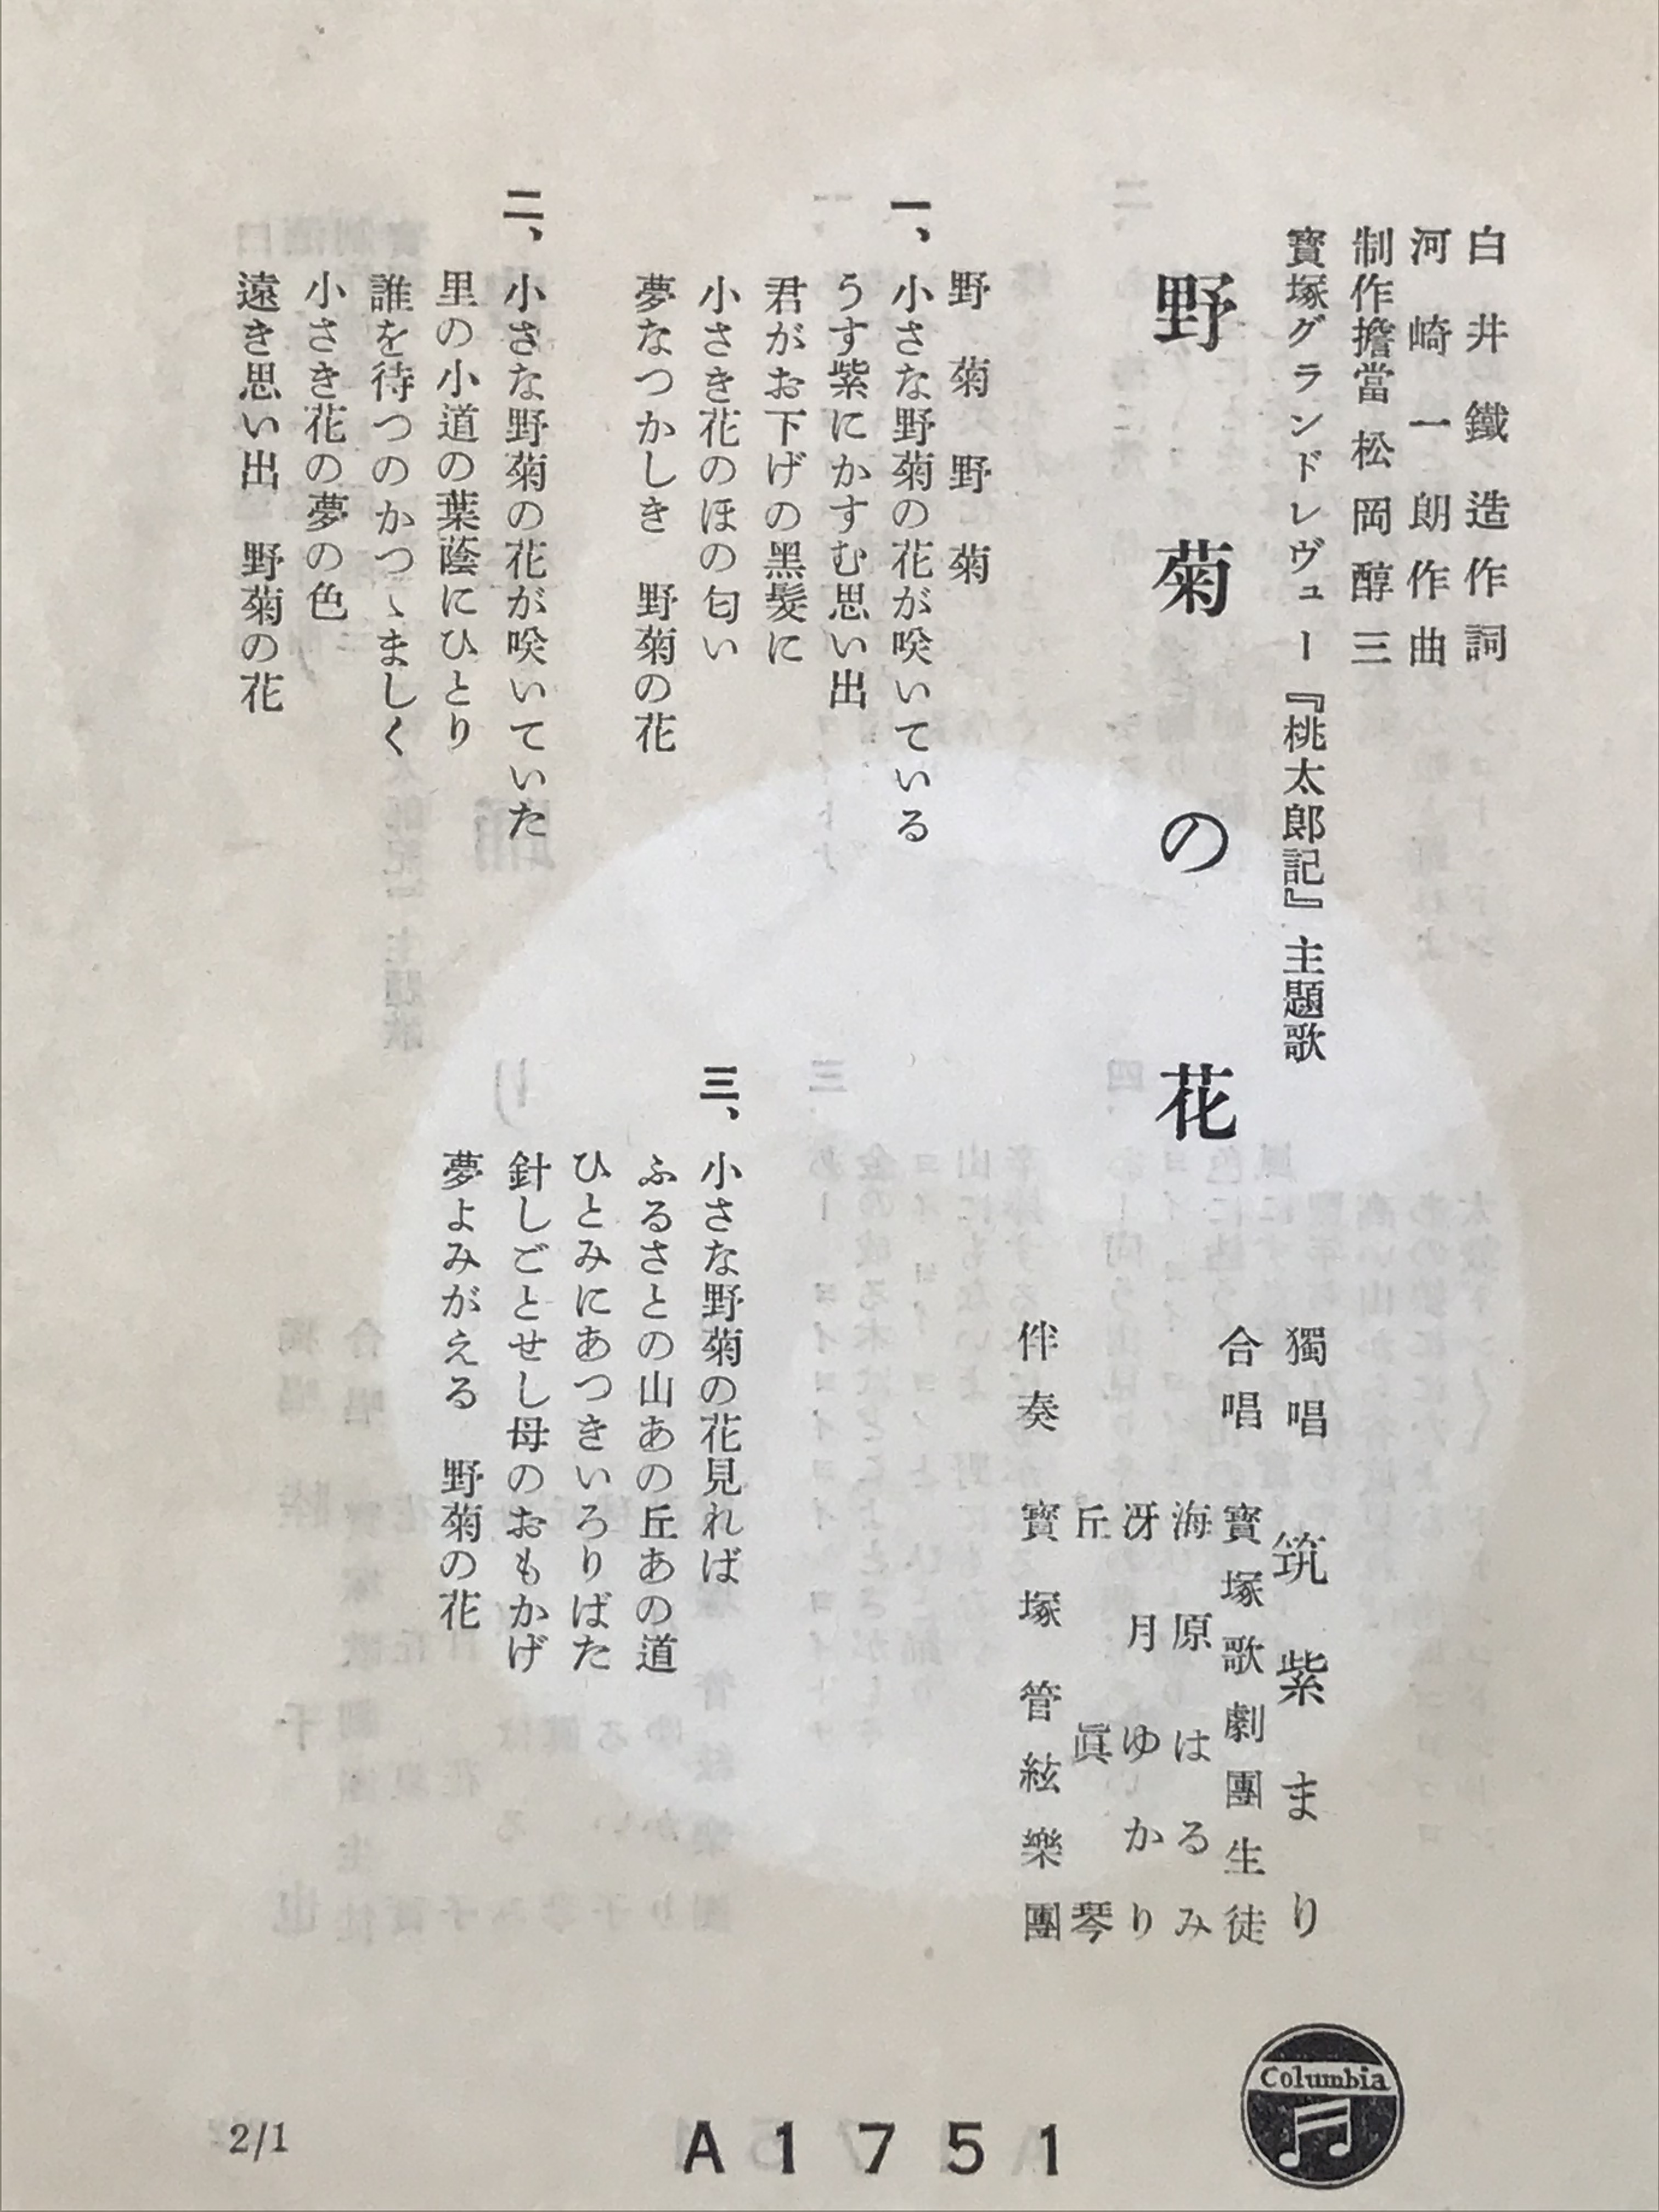 白井鐵造作詞
河崎一朗作曲
制作擔當 松岡醇三
寳塚グランドレヴュー『桃太郎記』主題歌
野菊の花
獨唱 筑紫まり
合唱 寳塚歌劇團生徒
海原はるみ
冴月ゆかり
丘眞琴
伴奏 寳塚管絃樂團
野菊野菊
一、小さな野菊の花が咲いている
うす紫にかすむ思い出
君がお下げの黑髮に
小さき花のほの匂い
夢なつかしき 野菊の花
二、小さな野菊の花が咲いていた
里の小道の葉蔭にひとり
誰を待つのかつゝましく
小さき花の夢の色
遠き思い出 野菊の花
三、小さな野菊の花見れば
ふるさとの山あの丘あの道
ひとみにあつきいろりばた
針しごとせし母のおもかげ
夢よみがえる 野菊の花
Columbia
A1751
2/1